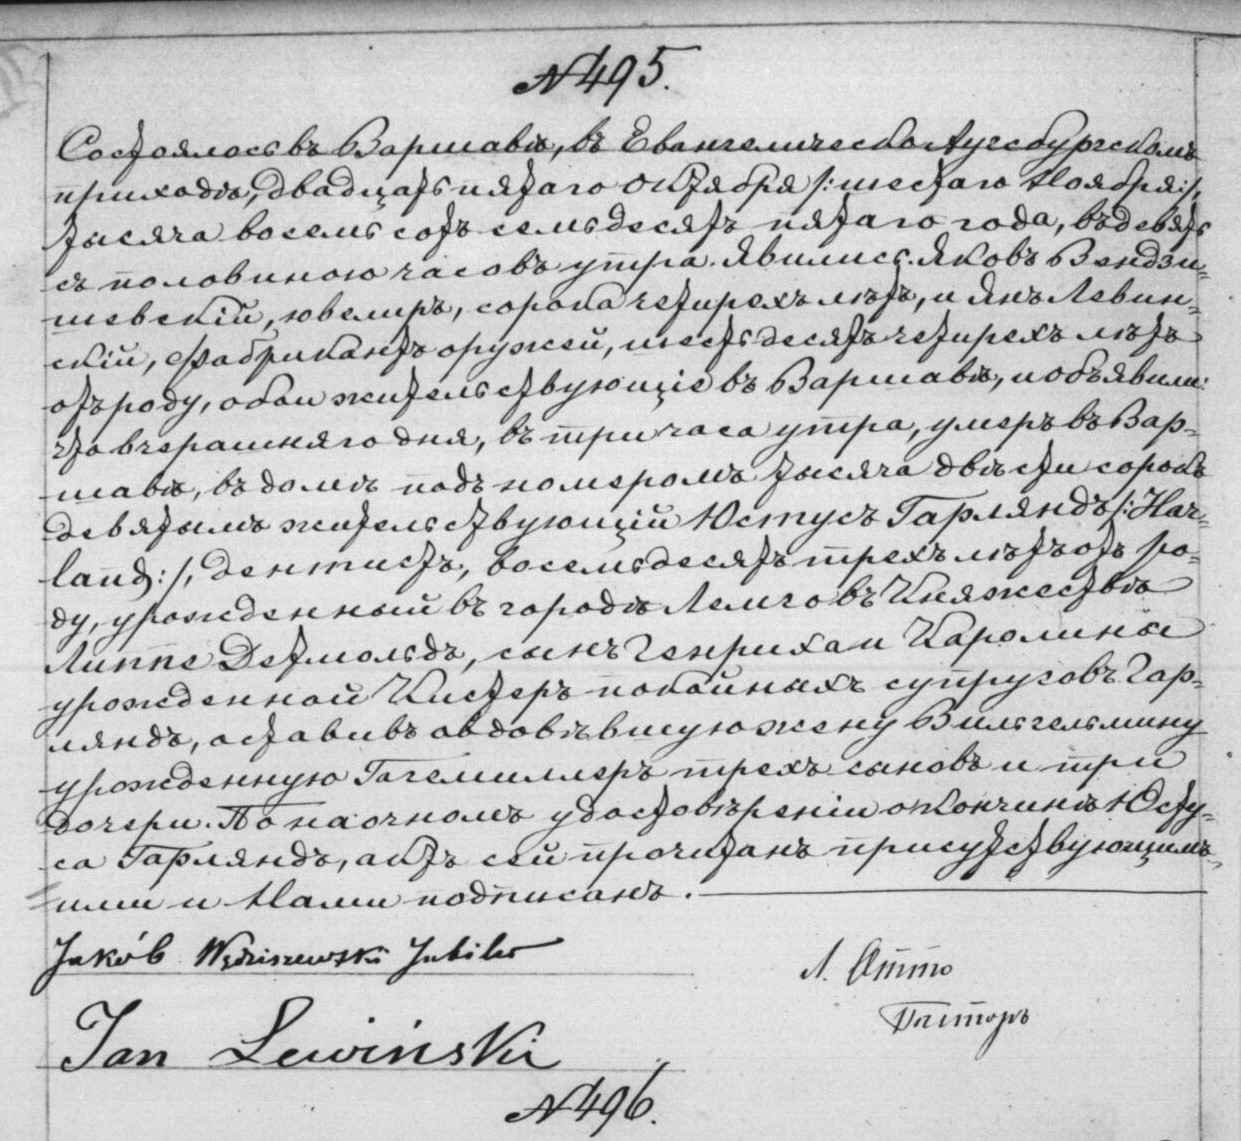 № 495.
Состоялось въ Варшавѣ, въ Евангелическо Аугсбургскомъ
приходѣ, двадцать пятаго Октября /: шестаго Ноября :/
тысяча восемь сотъ семьдесятъ пятаго года, въ девять
съ половиною часовъ утра. Явились Яковъ Вендзи-
шевскій, ювелиръ, сорока четырехъ лѣтъ, и Янъ Левин-
скій, фабрикантъ оружей, шестьдесятъ четырехъ лѣтъ
отъ роду, оба жительствующіе въ Варшавѣ, и объявили:
что вчерашняго дня, въ три часа утра, умеръ въ Вар-
шавѣ, въ домѣ подъ номеромъ тысяча двѣсти сорокъ
девятымъ жительствующій Юстусъ Гарляндъ /: Har-
land :/, дентистъ, восемьдесятъ трехъ лѣтъ отъ ро-
ду, урожденный въ городѣ Лемго въ Княжествѣ
Липпе Детмольдъ, сынъ Генриха и Каролины
урожденной Кистеръ покойныхъ супруговъ Гар-
ляндъ, оставивъ овдовѣвшую жену Вильгельмину
урожденную Гагемиллеръ трехъ сыновъ и три
дочери. По наочномъ удостовѣреніи о кончинѣ Юсту-
са Гарляндъ, актъ сей прочитанъ присутствующимъ,
ими и Нами подписанъ.
Jakób Wędziszewski Jubiler
Л. Отто
Пасторъ
Jan Lewiński
№ 496.